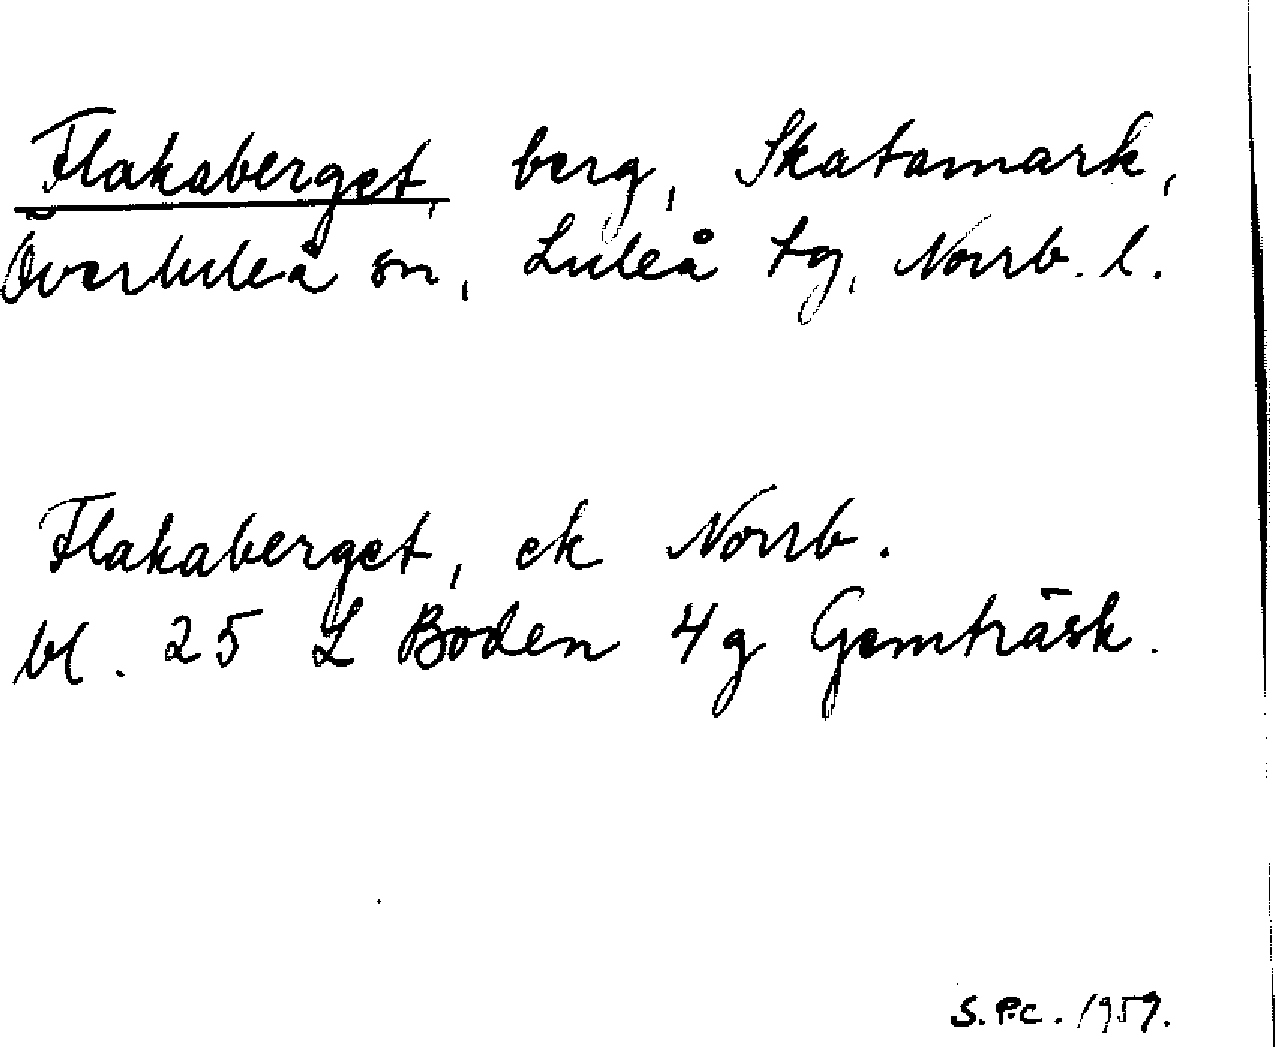 Flakaberget, berg, Skatamark,
Överluleå sn, Luleå tg, Norrb. l.
Flakaberget, ek Norrb.
bl. 25 L Boden 4g Gemträsk.
S.P.C. 1959.